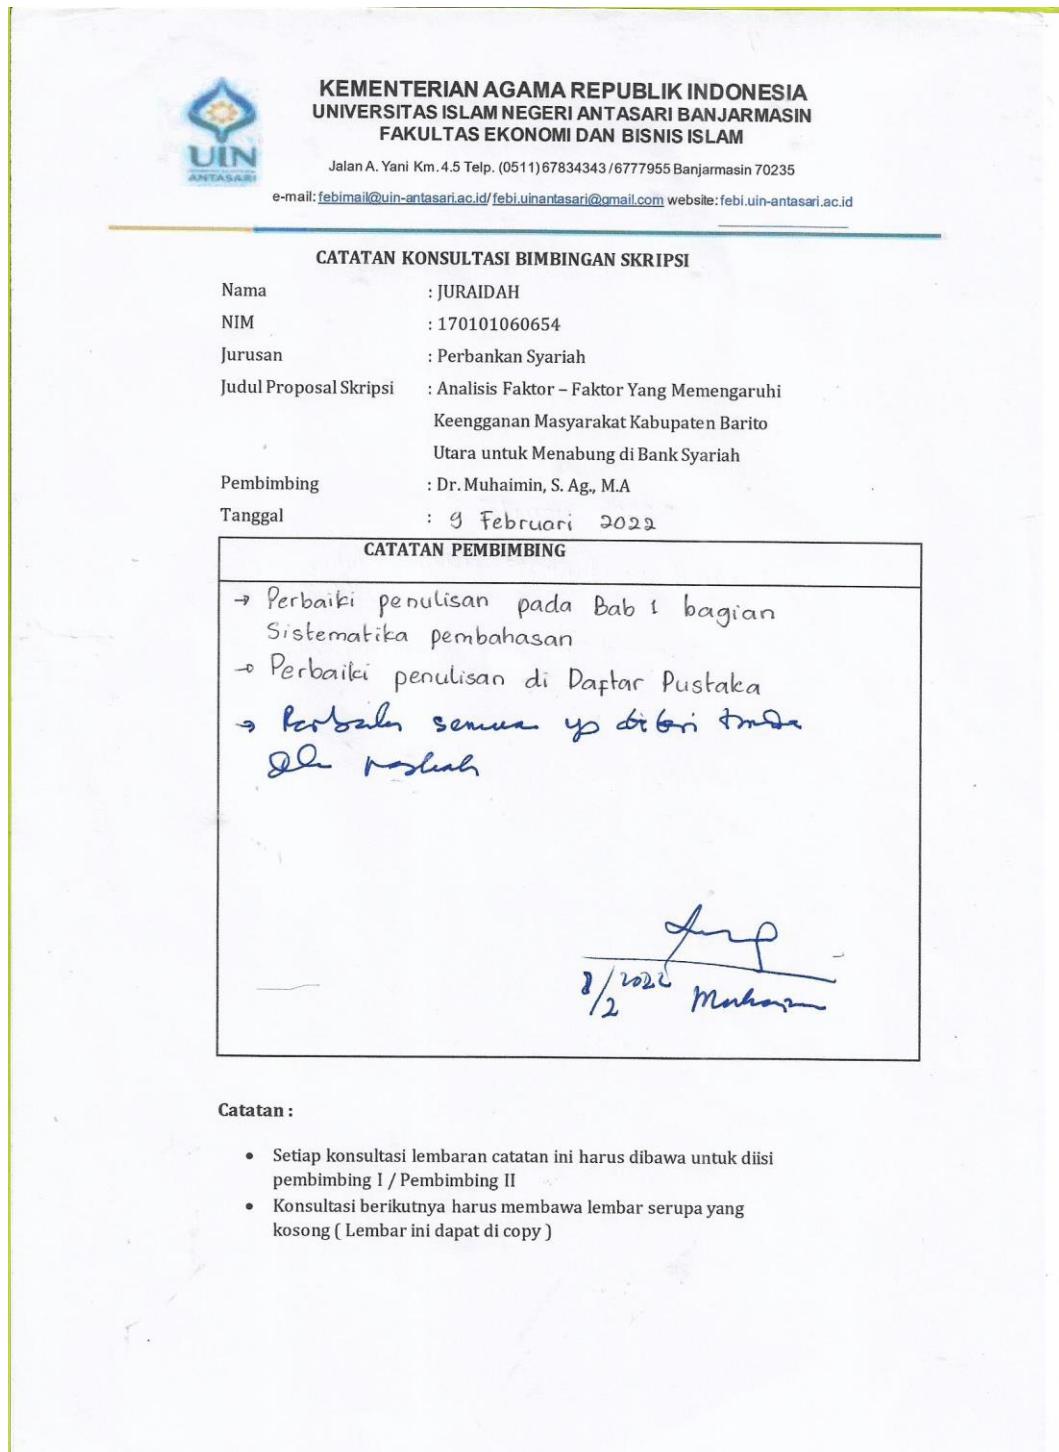 UIN
ANTASARI
KEMENTERIAN AGAMA REPUBLIK INDONESIA
UNIVERSITAS ISLAM NEGERI ANTASARI BANJARMASIN
FAKULTAS EKONOMI DAN BISNIS ISLAM
Jalan A. Yani Km. 4.5 Telp. (0511) 67834343 / 6777955 Banjarmasin 70235
e-mail: febimail@uin-antasari.ac.id/ febi.uinantasari@gmail.com website: febi.uin-antasari.ac.id
CATATAN KONSULTASI BIMBINGAN SKRIPSI
Nama : JURAIDAH
NIM : 170101060654
Jurusan : Perbankan Syariah
Judul Proposal Skripsi : Analisis Faktor – Faktor Yang Memengaruhi
Keengganan Masyarakat Kabupaten Barito
Utara untuk Menabung di Bank Syariah
Pembimbing : Dr. Muhaimin, S. Ag., M.A
Tanggal : 9 Februari 2022
CATATAN PEMBIMBING
→ Perbaiki penulisan pada Bab 1 bagian
Sistematika pembahasan
→ Perbaiki penulisan di Daftar Pustaka
→ Perbaiki semua yg diberi tanda
naskah
/2 2022 Muhaimin
Catatan :
• Setiap konsultasi lembaran catatan ini harus dibawa untuk diisi
pembimbing I / Pembimbing II
• Konsultasi berikutnya harus membawa lembar serupa yang
kosong ( Lembar ini dapat di copy )